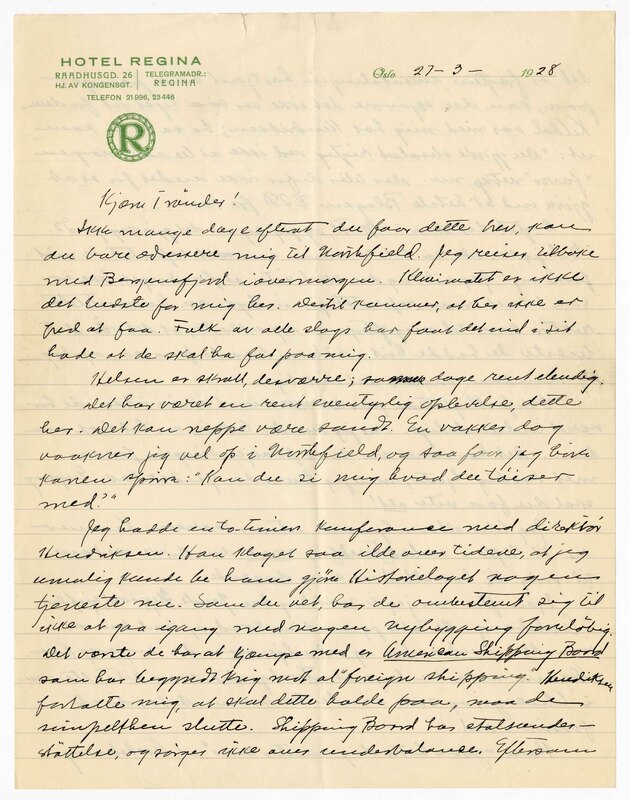 HOTEL REGINA
RAADHUSGD. 26 TELEGRAMADR.:
HJ. AV KONGENSGT. REGINA
TELEFON 21996, 23446
R
Oslo 27-3-1928
Kjære Trønder!
Ikke mange dage efterat du faar dette brev, kan
du bare adressere mig til Northfield. Jeg reiser tilbake
med Bergensfjord iovermorgen. Klimatet er ikke
det bedste for mig her. Dertil kommer, at her ikke er
fred at faa. Folk av alle slags har faat det ind i sit
hode at de skal ha fat paa mig.
Helsen er skrall, desværre; somme dage rent elendig.
Det har været en rent eventyrlig oplevelse, dette
her. Det kan neppe være sandt. En vakker dag
vaakner jeg vel op i Northfield, og saa faar jeg høre
konen spørre: "Kan du si mig hvad du tøiser
med?"
Jeg hadde en to-timers konferance med direktør
Hendriksen. Han klaget saa ilde over tidene, at jeg
umulig kunde be ham gjøre Historielaget nogen
tjeneste nu. Som du vet, har de ombestemt sig til
ikke at gaa igang med nogen nybygging foreløbig.
Det værste de har at kjæmpe med er American Shipping Board
som har begyndt krig mot al "foreign shipping." Hendriksen
fortalte mig, at skal dette holde paa, maa de
simpelthen slutte. Shipping Board har statsunder-
støttelse, og sørger ikke over underbalance. Eftersom